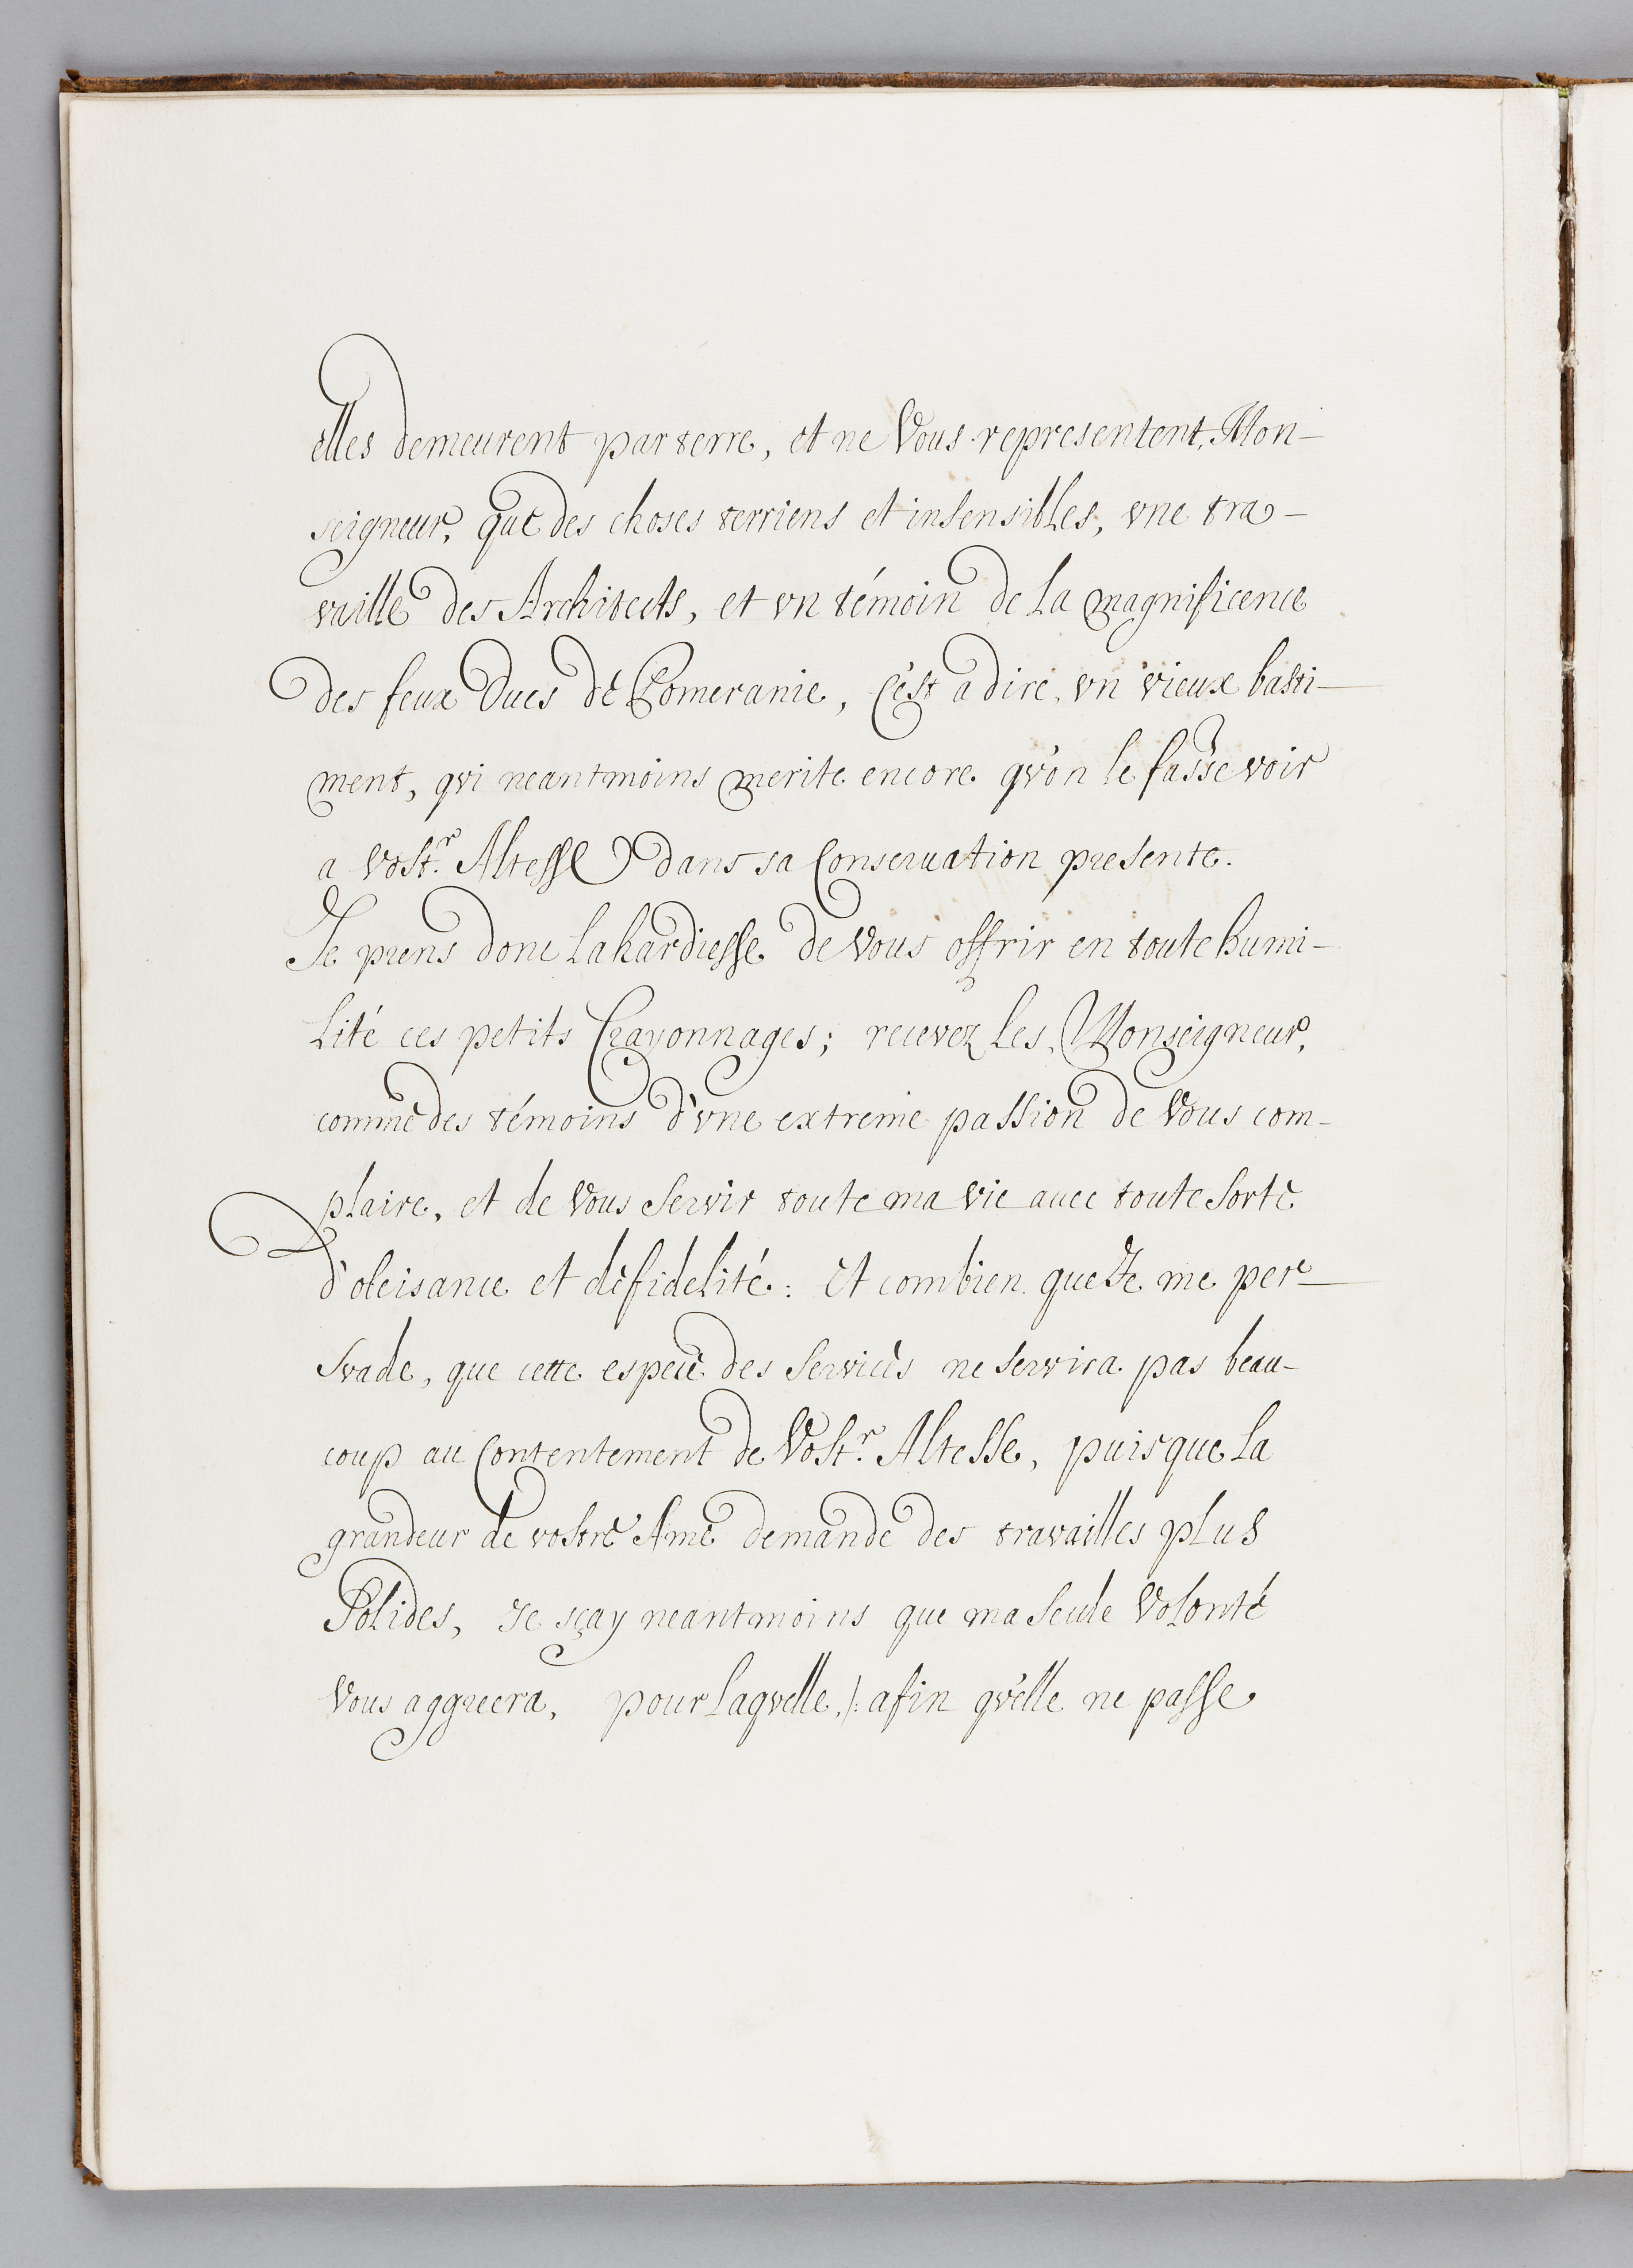 elles demeurent par terre, et ne Vous representent, Mon-
seigneur, que des choses terriens et insensibles, vne tra-
vaille des Architects, et vn témoin de la magnificence
des feux Ducs de Pomeranie, c'est a dire, vn vieux basti-
ment, qvi neantmoins merite encore qv'on le fasse voir
a Vostr. Altesse dans sa Conseruation presente.
Je prens donc la hardiesse de Vous offrir en toute humi-
lité ces petits Crayonnages; recevez les, Monseigneur,
comme des témoins d'vne extreme passion de Vous com-
plaire, et de Vous servir toute ma vie auec toute sorte
d'obeisance et de fidelité: et combien que Je me per-
svade, que cette espece des services ne servira pas beau-
coup au Contentement de Vostr. Altesse, puisque la
grandeur de vostre Ame demande des travailles plus
Solides, Je sçay neantmoins que ma seule Volonté
Vous aggreera, pour laqvelle, /: afin qv'elle ne passe